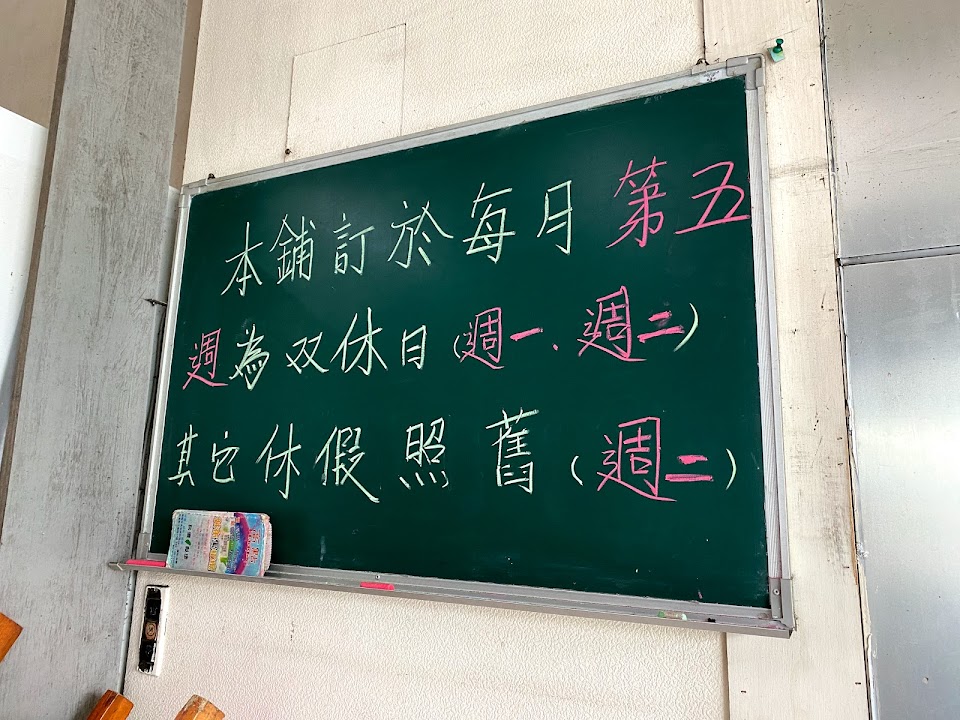 本鋪訂於每月第五
週為双休日(週一.週二)
其它休假照舊(週二)